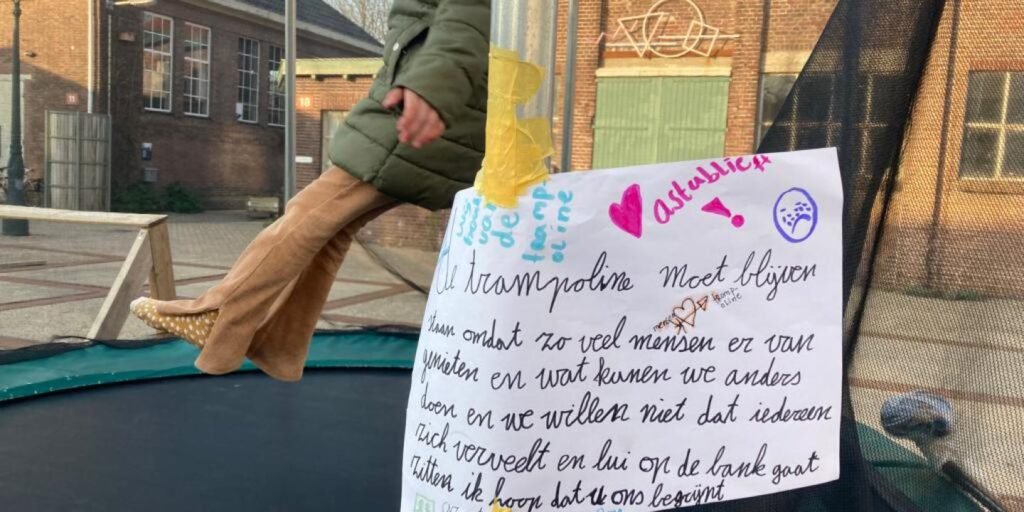 van
de
tramp
oline
astublieft
!
de trampoline moet blijven
mens
tramp-
oline
staan omdat zo veel mensen er van
genieten en wat kunen we anders
doen en we willen niet dat iedereen
zich verveelt en lui op de bank gaat
zitten ik hoop dat u ons begrijnt